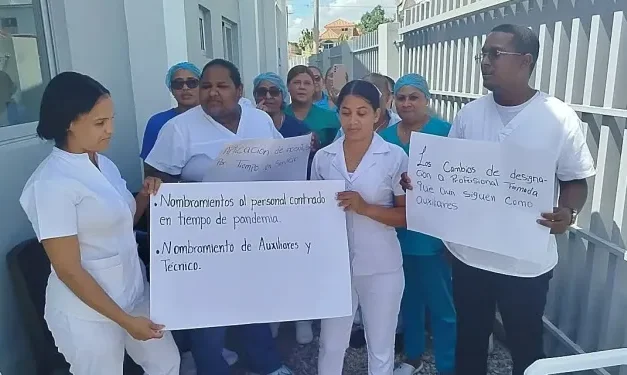 Aplicacion de
por Tiempo en servicio
• Nombramientos al personal contratado
en tiempo de pandemia.
• Nombramiento de Auxiliares y
Técnico.
Los Cambios de designa-
cion D Profesional
que aun siguen como
Auxiliares